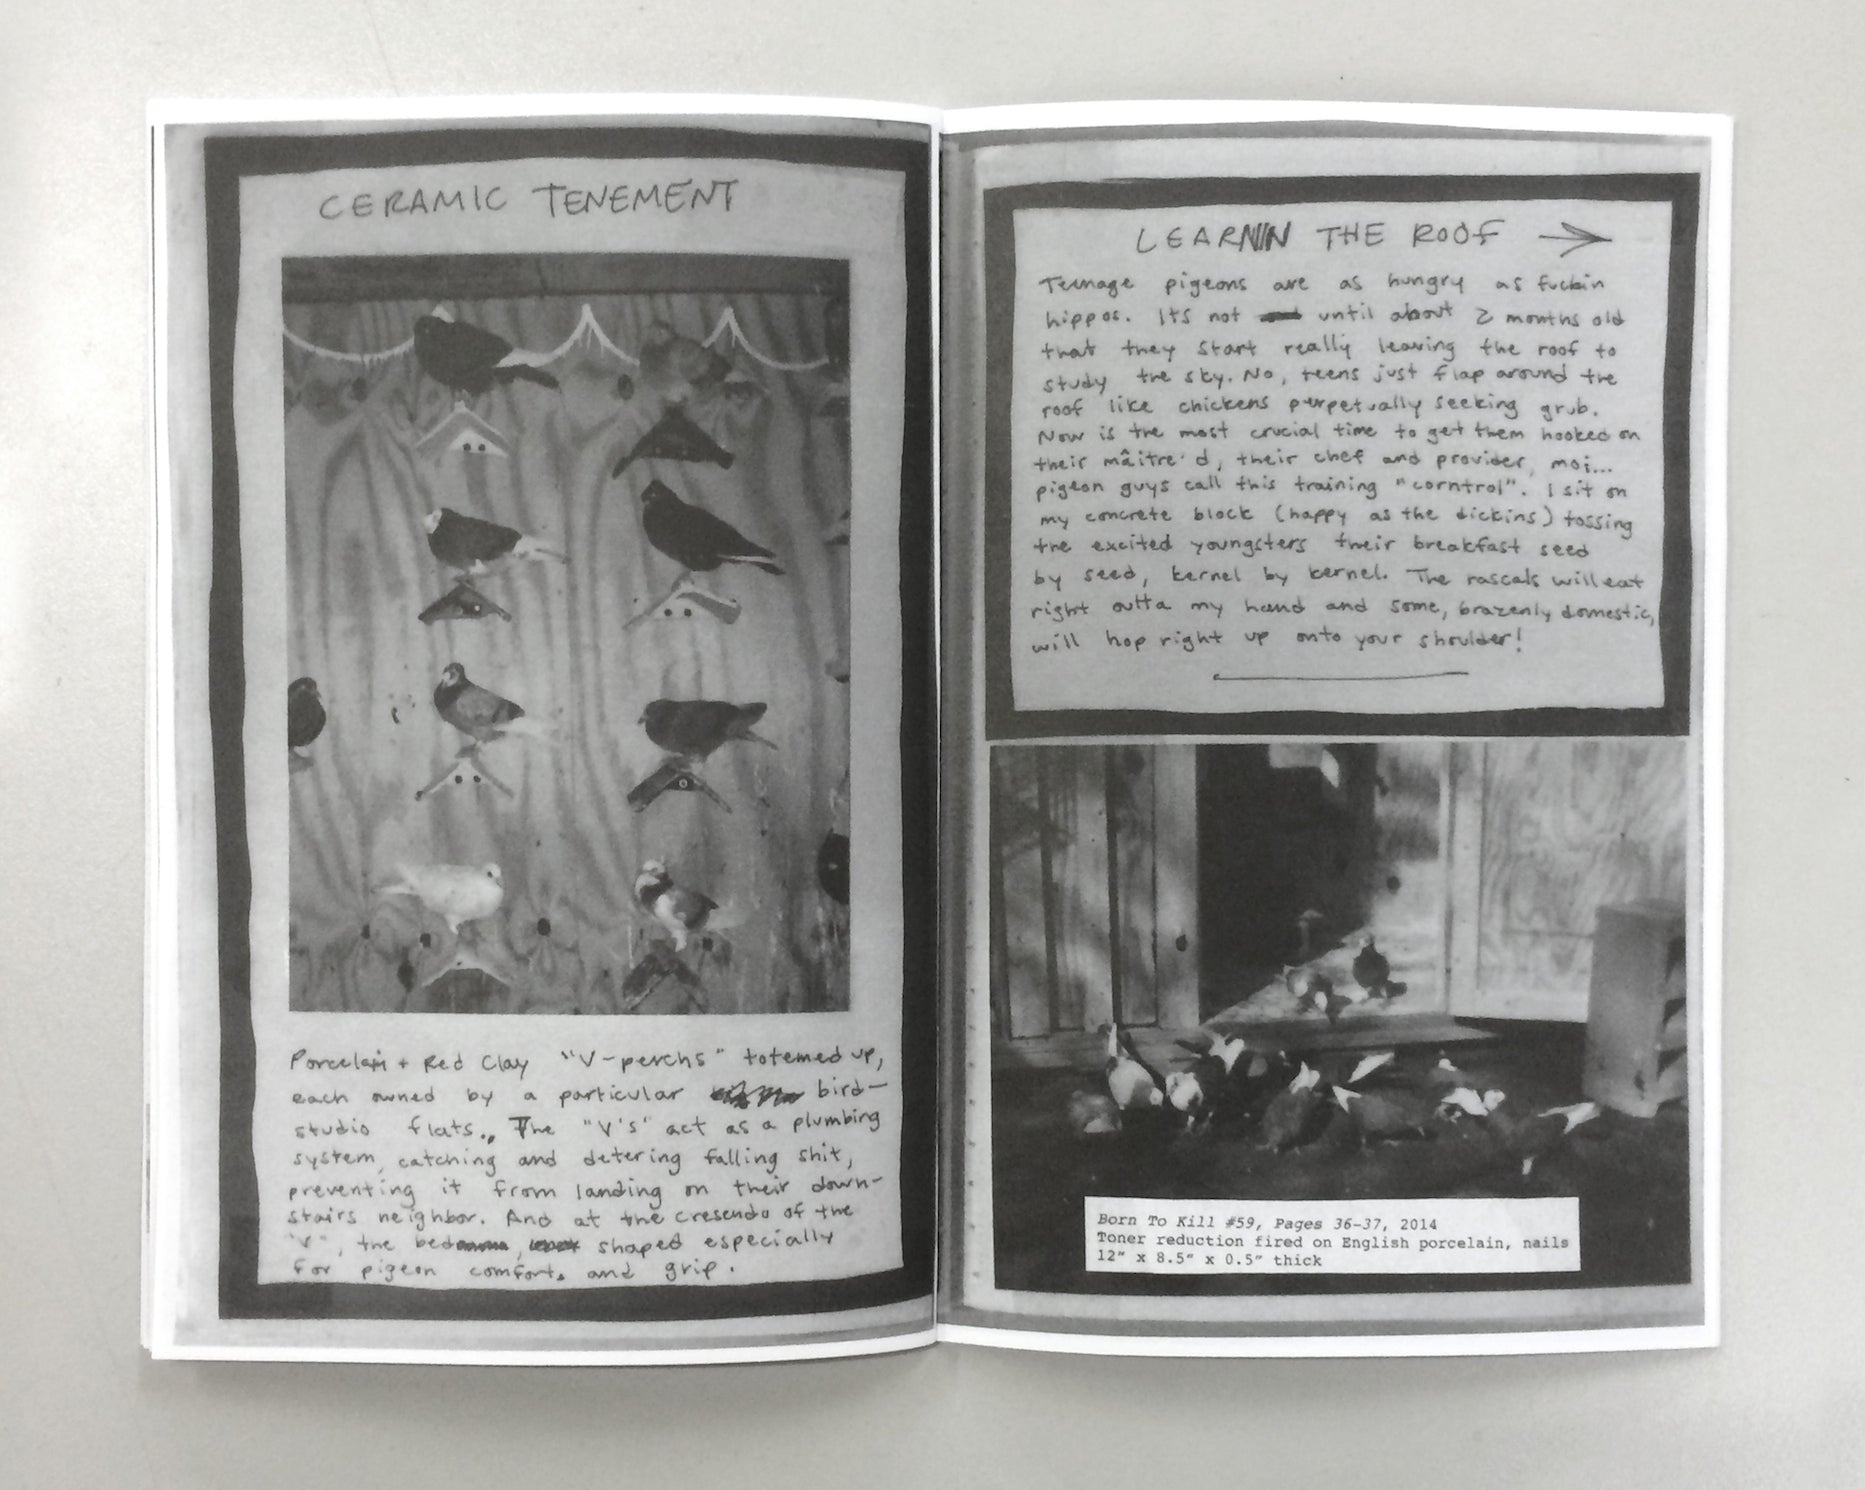 CERAMIC TENEMENT
Porcelain + Red Clay "V-perchs" totemed up,
each owned by a particular bird—
studio flats. The "V's" act as a plumbing
system, catching and detering falling shit,
preventing it from landing on their down-
stairs neighbor. And at the cresendo of the
"V", the bed, shaped especially
for pigeon comfort, and grip.
LEARNIN THE ROOF →
Teenage pigeons are as hungry as fuckin
hippos. Its not until about 2 months old
that they start really leaving the roof to
study the sky. No, teens just flap around the
roof like chickens perpetually seeking grub.
Now is the most crucial time to get them hooked on
their mâitre'd, their chef and provider, moi...
pigeon guys call this training "corntrol". I sit on
my concrete block (happy as the dickins) tossing
the excited youngsters their breakfast seed
by seed, kernel by kernel. The rascals will eat
right outta my hand and some, brazenly domestic,
will hop right up onto your shoulder!
Born To Kill #59, Pages 36-37, 2014
Toner reduction fired on English porcelain, nails
12" x 8.5" x 0.5" thick